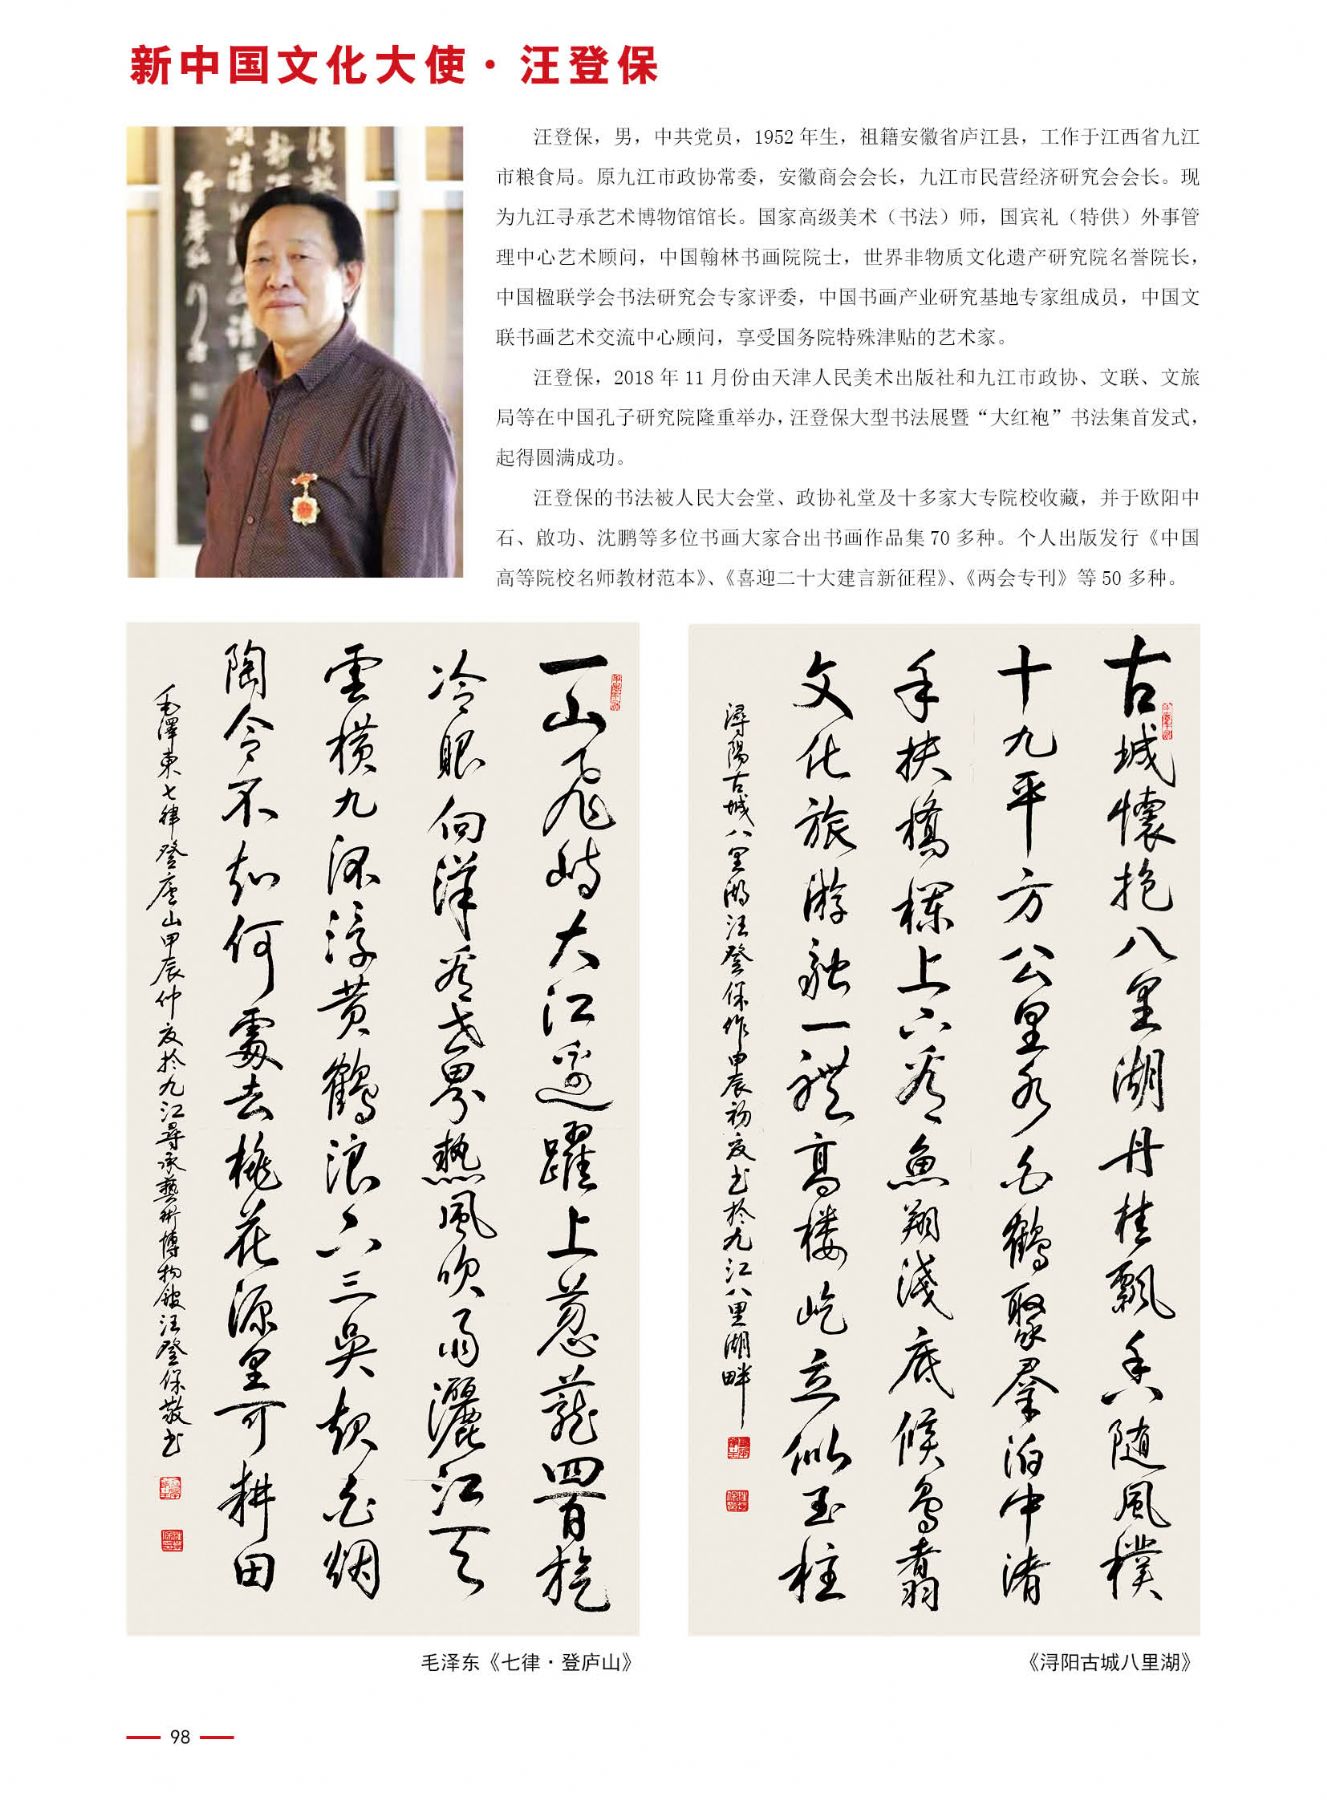 新中国文化大使·汪登保
汪登保，男，中共党员，1952 年生，祖籍安徽省庐江县，工作于江西省九江
市粮食局。原九江市政协常委，安徽商会会长，九江市民营经济研究会会长。现
为九江寻承艺术博物馆馆长。国家高级美术（书法）师，国宾礼（特供）外事管
理中心艺术顾问，中国翰林书画院院士，世界非物质文化遗产研究院名誉院长，
中国楹联学会书法研究会专家评委，中国书画产业研究基地专家组成员，中国文
联书画艺术交流中心顾问，享受国务院特殊津贴的艺术家。
汪登保，2018 年 11 月份由天津人民美术出版社和九江市政协、文联、文旅
局等在中国孔子研究院隆重举办，汪登保大型书法展暨“大红袍”书法集首发式，
起得圆满成功。
汪登保的书法被人民大会堂、政协礼堂及十多家大专院校收藏，并于欧阳中
石、啟功、沈鹏等多位书画大家合出书画作品集 70 多种。个人出版发行《中国
高等院校名师教材范本》、《喜迎二十大建言新征程》、《两会专刊》等 50 多种。
一山飞峙大江邊躍上葱蘢四百旋
冷眼向洋看世界熱風吹雨灑江天
雲横九派浮黄鶴浪下三吳起白烟
陶令不知何處去桃花源里可耕田
毛澤東七律登庐山甲辰仲夏於九江尋承藝術博物館汪登保敬书
毛泽东《七律·登庐山》
古城懷抱八里湖丹桂飄香随風樸
十九平方公里水白鶴聚羣泊中渚
手扶橋欄上下看魚翔淺底候鸟翥
文化旅游融一體高楼屹立似玉柱
潯陽古城八里湖汪登保作甲辰初夏书於九江八里湖畔
《浔阳古城八里湖》
98